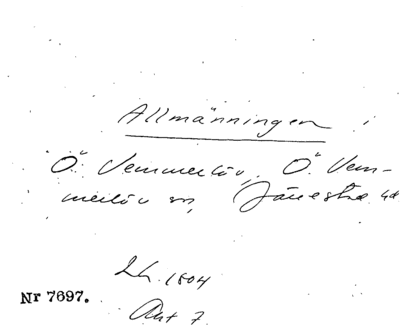 Allmänningen
Ö. Vemmerlöv, Ö. Vem-
merlöv sn,
Lh. 1804
Akt 7
Nr 7697.